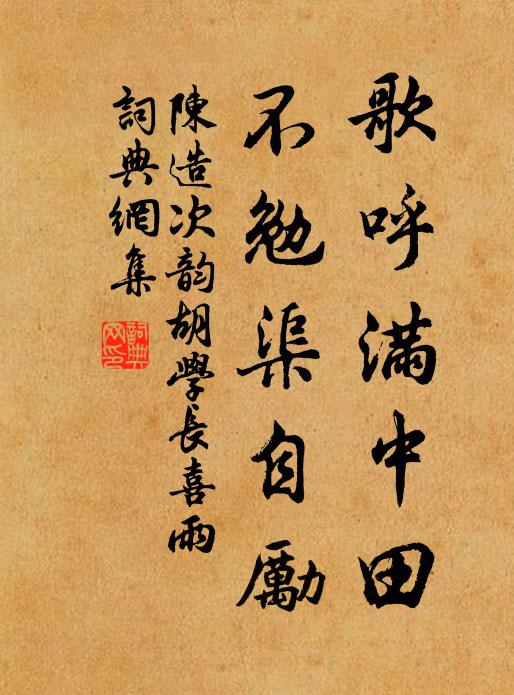 歌呼满中田
不勉渠自勵
陳造次韵胡學長喜雨
詞典網集
詞典
网印